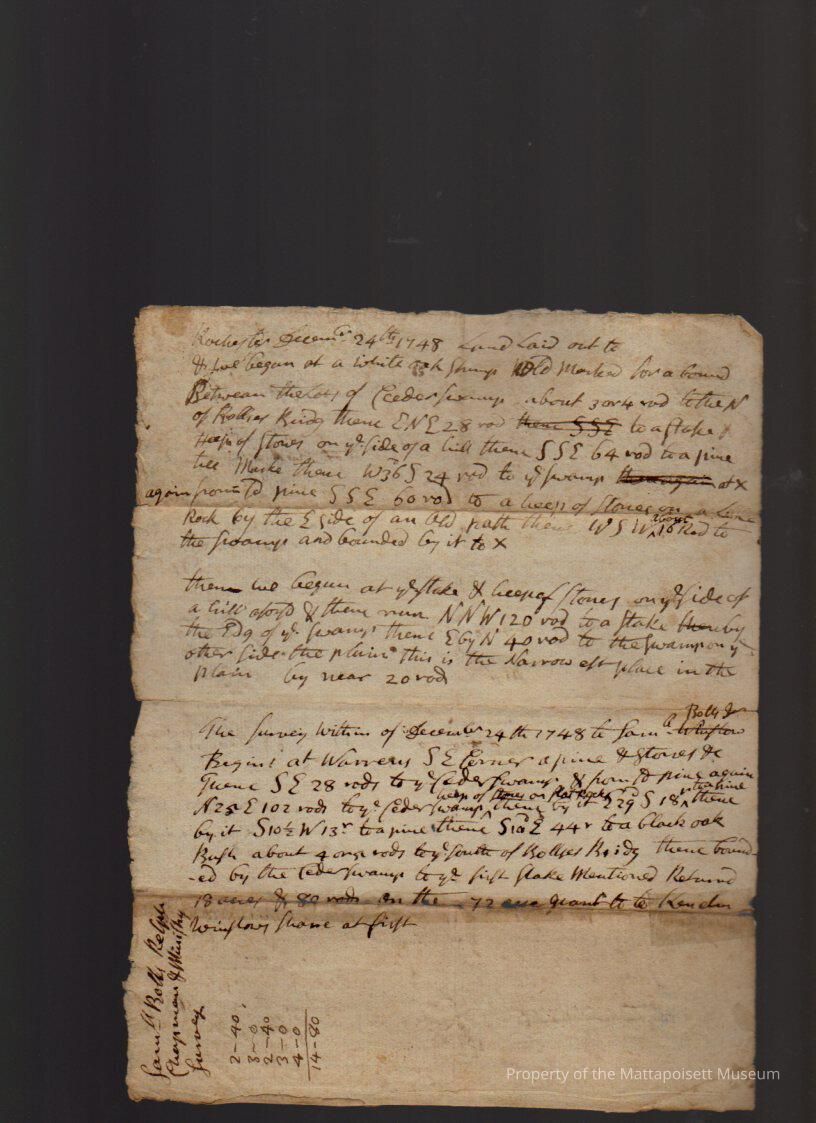 Rochester Decemr 24th 1748 Land Laid out to
& we began at a white oak Stump old Marked for a bound
Between the Lots of Ceeder swamp about 3 or 4 rod to the N
of Bollses Bridg thenc ENE 28 rod thenc SSE to a stake &
Heep of Stones on ye side of a hill thenc SSE 64 rod to a pine
tree Marke thenc W36S 24 rod to ye swamp then again at x
again from sd pine SSE 60 rod to a heep of Stones on a
Rock by the E side of an old path thenc WSW about 16 Rod to
the swamp and bounded by it to x
then we began at ye stake & heep of Stones on ye side of
a hill aforsd & thenc run NNW 120 rod to a stake by
the Edg of ye swamp thenc E by N 40 rod to the swamp on ye
other side the plain this is the Narrowest place in the
plain by near 20 rods
Bolls &c
The survey within of December 24th 1748 to Saml Winslow
Begins at Warrens SE Corner a pine & stones &c
Thenc SE 28 rods to ye Ceder swamp & from sd pine again
heep of stones on flat Rock to a pine
N25E 102 rods to ye Ceder swamp thenc by it S29 S 18 thenc
by it S10½ W 13r to a pine thenc S12E 44r to a black oak
Bush about 4 rods to ye South of Bollses Bridg thenc bound-
-ed by the Ceder swamp to ye first stake Mentioned Returnd
18 acres & 80 rods on the 72 acre grant to Kenelm
Winslows share at first
Saml Bolls Relph
Chapman & Ministry
Survey
2-40
3-0
2-40
3-0
4-0
14-80
Property of the Mattapoisett Museum